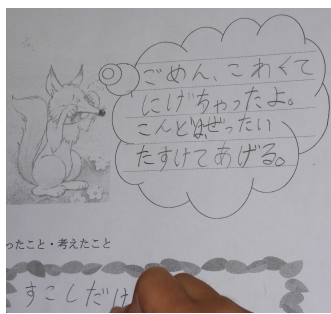 ごめん、こわくて
にげちゃったよ。
こんどはぜったい
たすけてあげる。
ったこと・考えたこと
すこしだけ